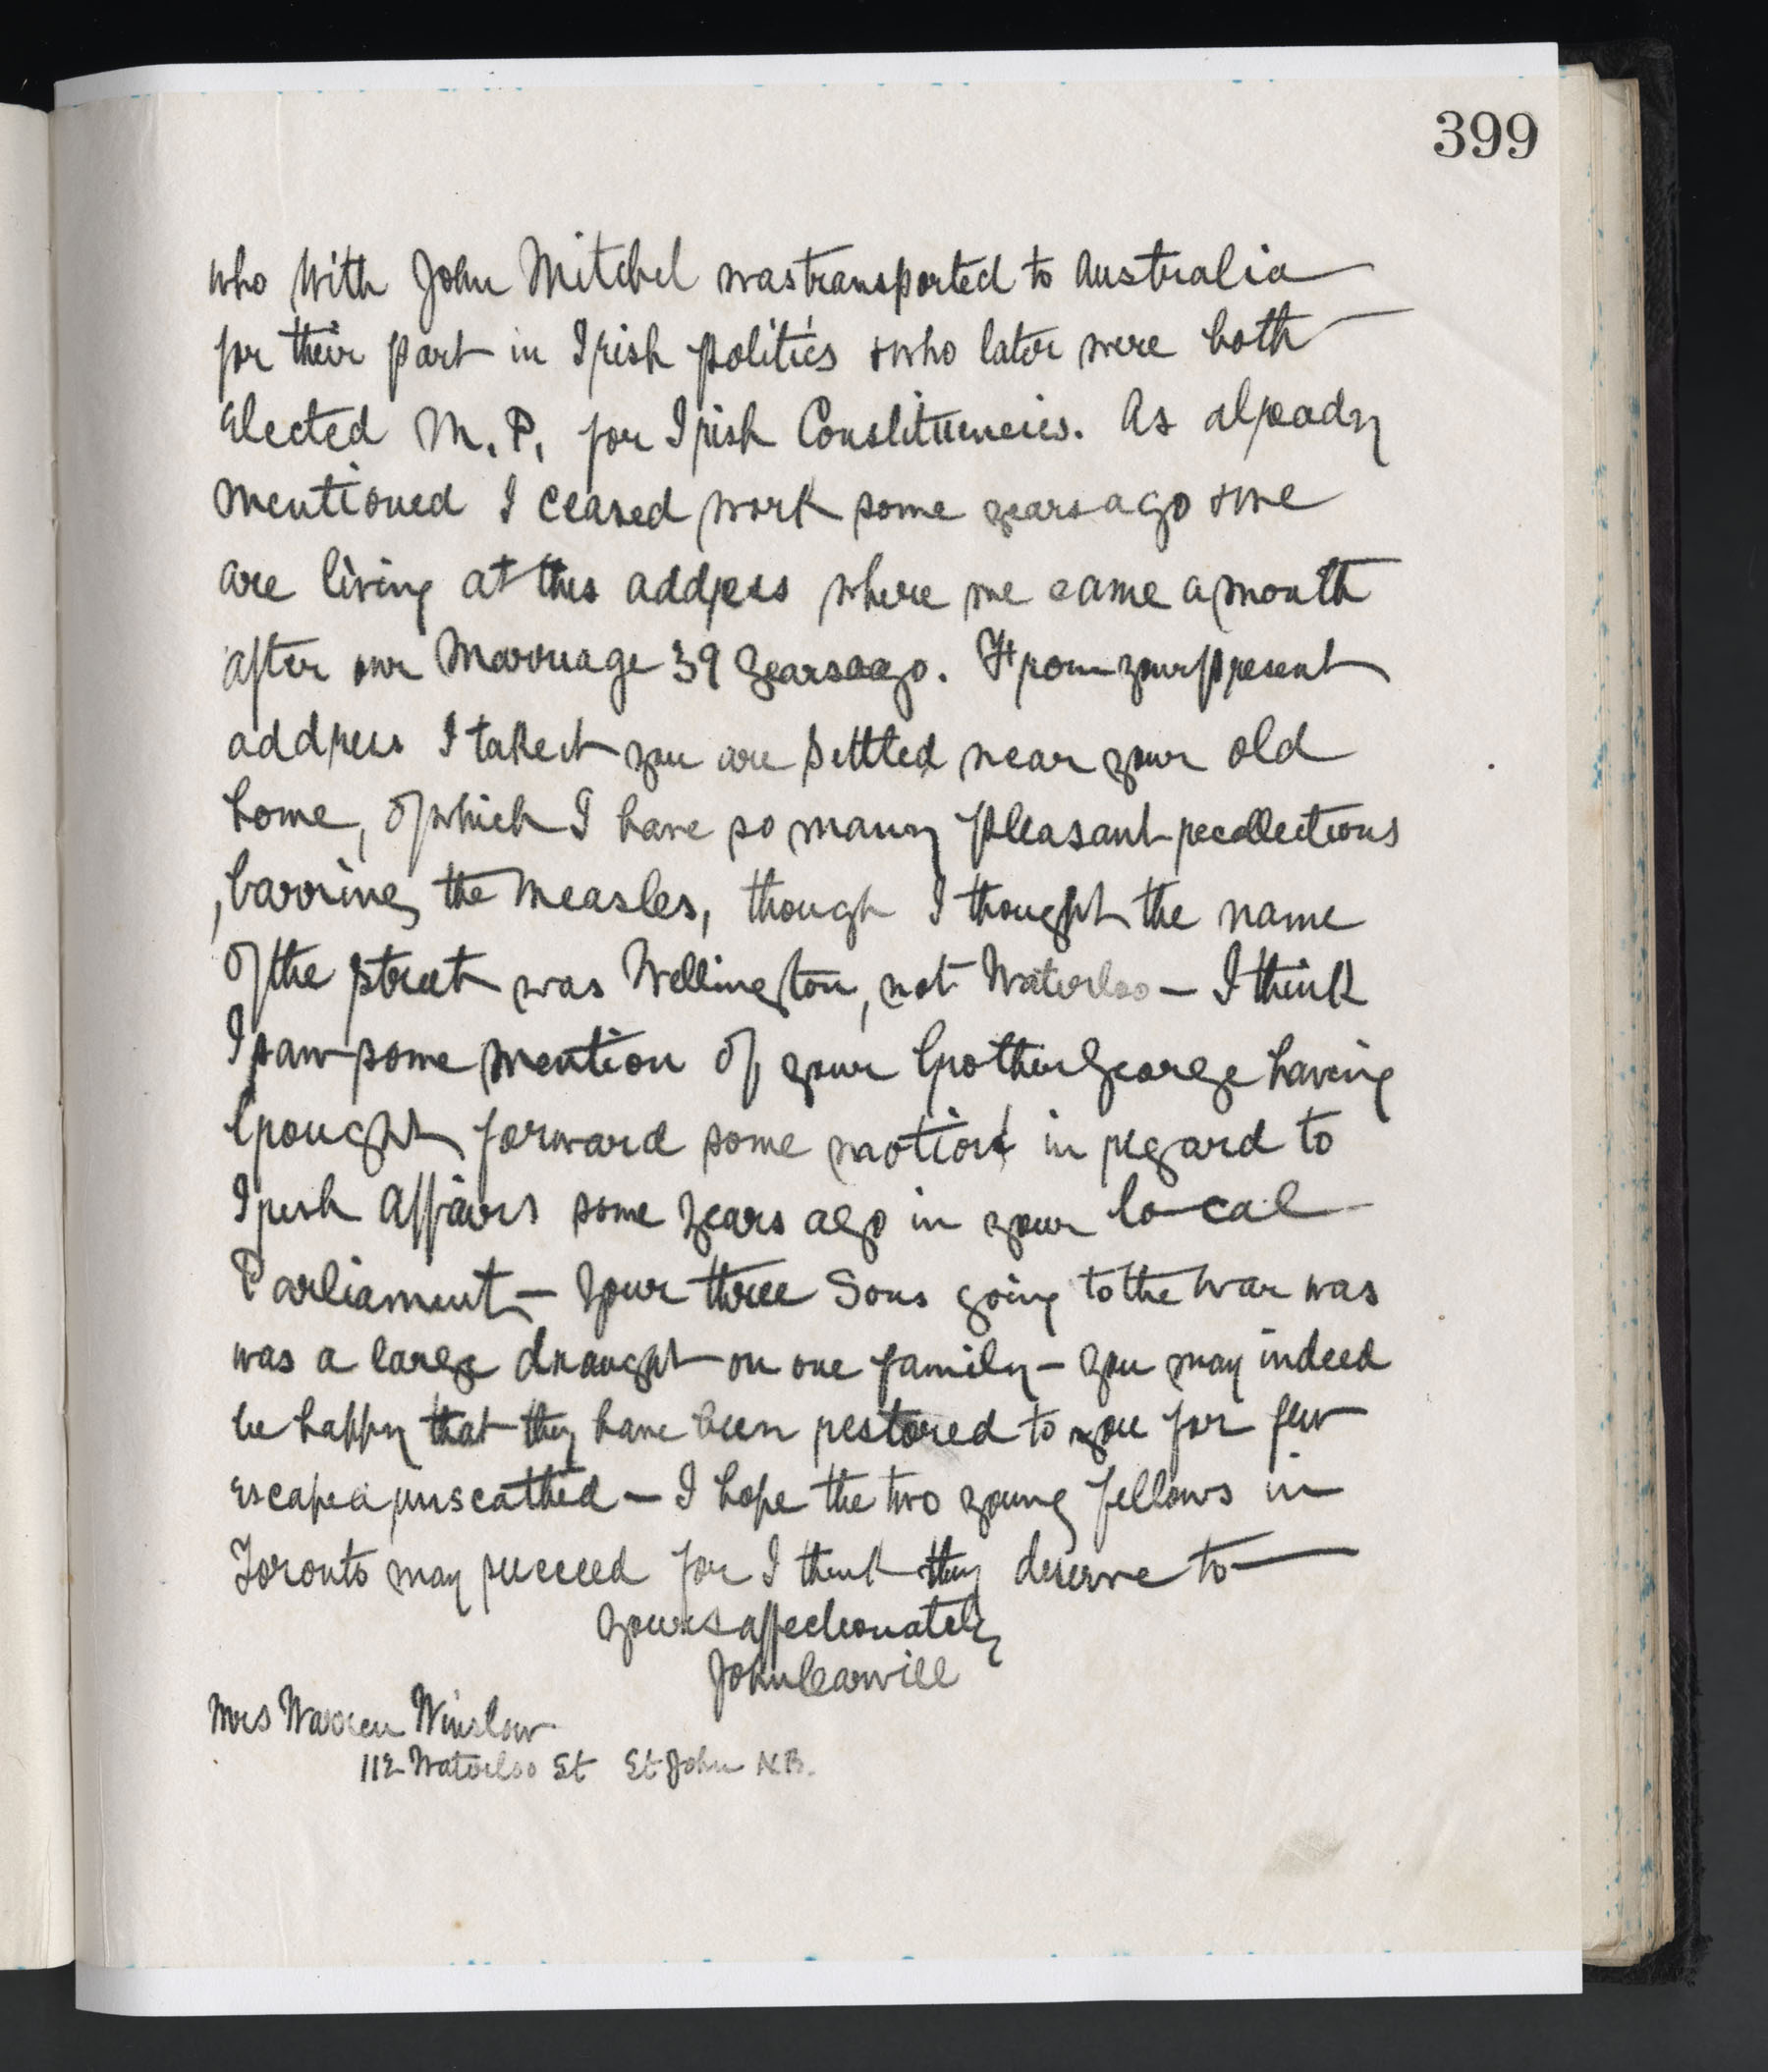 399
who with John Mitchel was transported to Australia
for their part in Irish politics & who later were both
Elected M.P. for Irish Constituencies. As already
mentioned I ceased work some years ago & we
are living at this address where we came a month
after our Marriage 39 years ago. From your present
address I take it you are settled near your old
home, of which I have so many pleasant recollections
, barring the measles, though I thought the name
of the street was Wellington, not Waterloo — I think
I saw some mention of your brother George having
brought forward some motion in regard to
Irish Affairs some years ago in your local
Parliament — Your three Sons going to the war was
was a large draught on one family — you may indeed
be happy that they have been restored to you for few
escaped unscathed — I hope the two young fellows in
Toronto may succeed for I think they deserve to —
Yours affectionately
John Carvill
Mrs Warren Winslow
112 Waterloo St St John N.B.